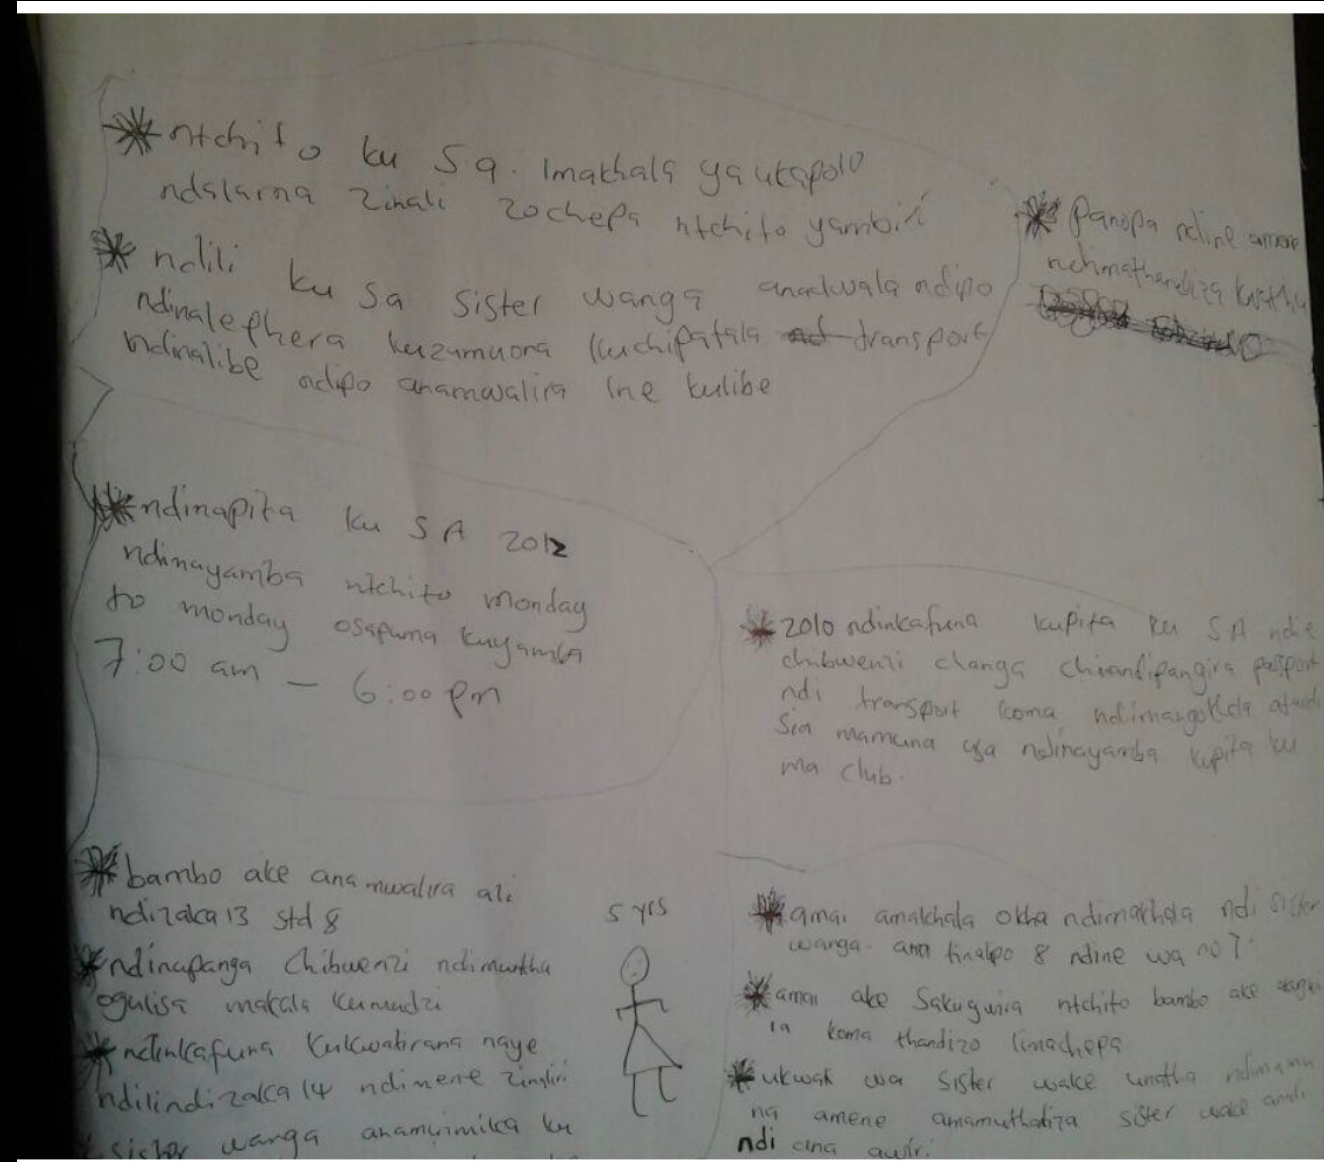 * ntchito ku Sa. Imakhala ya ukapolo
ndalama zinali zochepa ntchito yambiri
* ndili ku Sa sister wanga anadwala ndipo
ndinalephera kuzamuona kuchipatala transport
ndinalibe ndipo anamwalira ine kulibe
* Panopa ndine amene
kunthu
* ndinapita ku SA 2012
ndinayamba ntchito monday
to monday osapuma kuyamba
7:00 am — 6:00 pm
* 2010 ndinkafuna kupita ku SA ndie
chibwenzi changa chinandipangira passport
ndi transport koma ndimangokhala
Sia mamuna uja ndinayamba kupita ku
ma club.
* bambo ake anamwalira ali
ndizaka 13 std 8
* ndinapanga Chibwenzi ndimunthu
ogulisa makala kumudzi
* ndinkafuna kukwatirana naye
ndilindizaka 14 ndimene
sister wanga anamuimika ku
5 yrs
* amai amakhala okha ndimakhala ndi sister
wanga. ana tinalipo 8 ndine wa no 7.
* amai ake Sakugwira ntchito bambo ake
ra koma thandizo limachepa
* ukwati wa sister wake unatha
na amene amamuthandiza sister wake anali
ndi ana awiri.